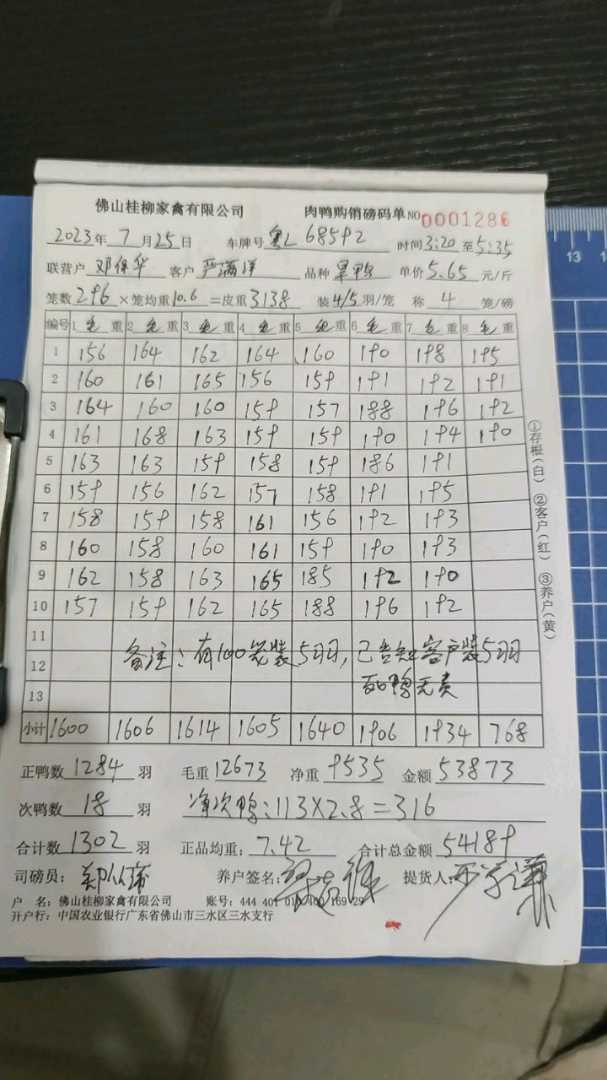 佛山桂柳家禽有限公司 肉鸭购销磅码单 NO 0001286
2023年 7月25日 车牌号 粤L 68592 时间3:20至5:35
联营户 邓保华 客户 严满洋 品种 单价5.65元/斤
笼数296×笼均重10.6=皮重3138 装4/5羽/笼 称 4 笼/磅
编号 1 毛 重 2 毛 重 3 毛 重 4 毛 重 5 毛 重 6 毛 重 7 毛 重 8 毛 重
1 156 164 162 164 160 190 198 195
2 160 161 165 156 159 191 192 191
3 164 160 160 159 157 188 196 192
4 161 168 163 159 159 190 194 190
5 163 163 159 158 159 186 191
6 159 156 162 157 158 191 195
7 158 159 158 161 156 192 193
8 160 158 160 161 159 190 193
9 162 158 163 165 185 192 190
10 157 159 162 165 188 196 192
11
12 备注：有100笼装5羽，已告知客户装5羽
13 死鸭无责
小计 1600 1606 1614 1605 1640 1906 1934 768
正鸭数 1284 羽 毛重 12673 净重 9535 金额 53873
次鸭数 18 羽 净次鸭：113×2.8=316
合计数 1302 羽 正品均重：7.42 合计总金额 54189
司磅员： 养户签名： 提货人：
户 名：佛山桂柳家禽有限公司 账号：444 401 010 400 169 29
开户行：中国农业银行广东省佛山市三水区三水支行
①存根（白） ②客户（红） ③养户（黄）
13